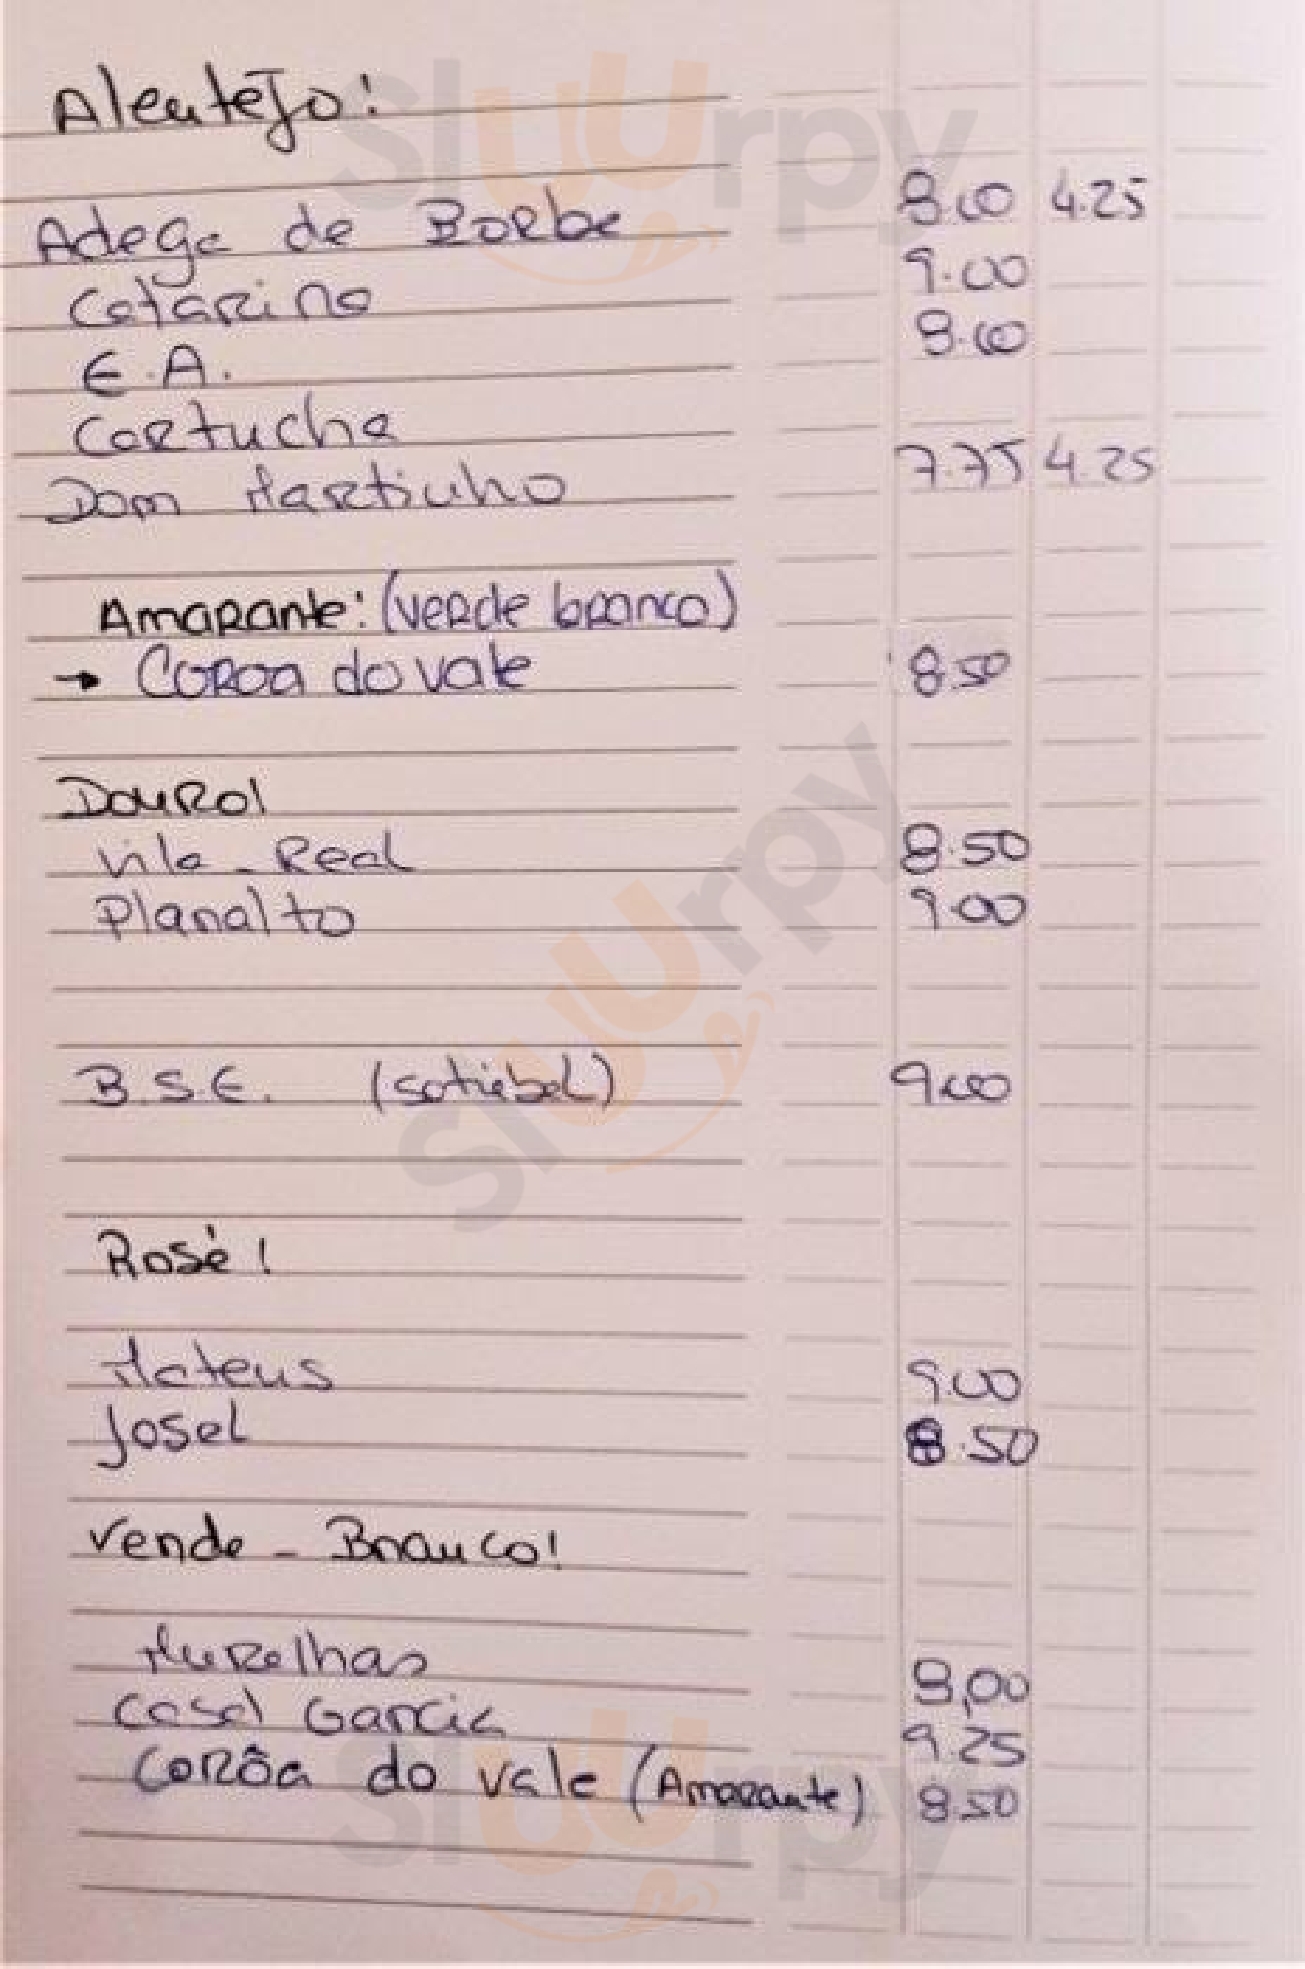 Alentejo:
Adega de Borba 8.00 4.25
Catarina 9.00
E.A. 8.00
Cartucha
Dom Martinho 7.75 4.25
Amarante: (verde branco)
→ Coroa do vale 8.50
Douro!
Vila-Real 8.50
Planalto 9.00
B.S.E. (setúbal) 9.00
Rosé!
Mateus 9.00
Josel 8.50
Verde - Branco!
Muralhas 9,00
Casal Garcia 9.25
Corôa do vale (Amarante) 8.50
Sluurpy
Sluurpy
Sluurpy